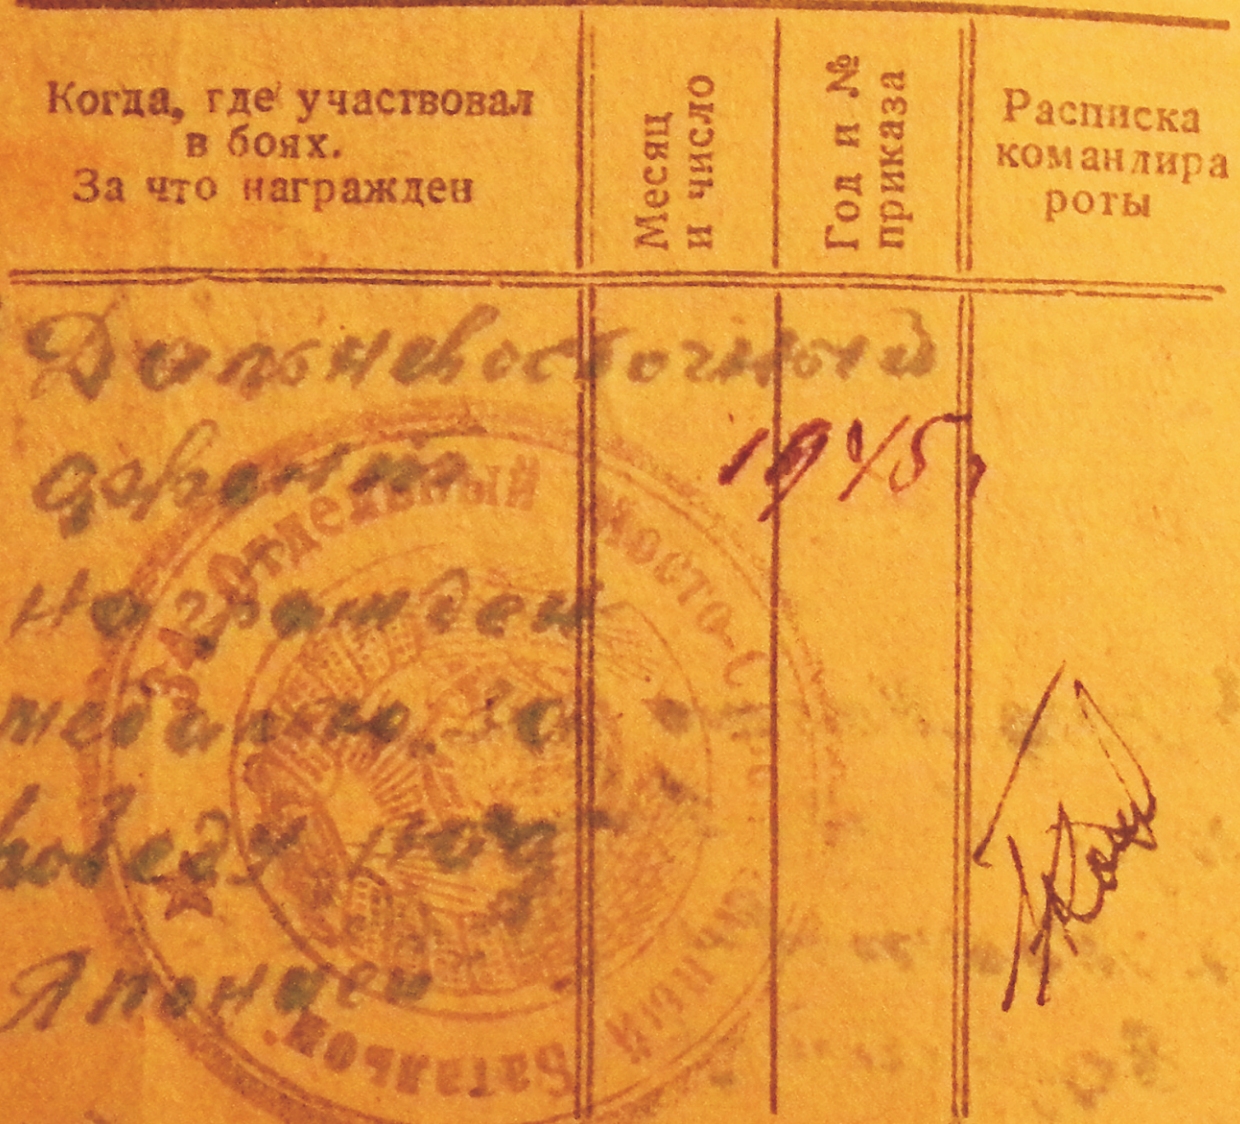 Когда, где участвовал
в боях.
За что награжден
Месяц
и число
Год и №
приказа
Расписка
командира
роты
Дальневосточный
фронт
1945
награжден
медалью За
победу над
Японией
Отдельный Мосто-
Батальон